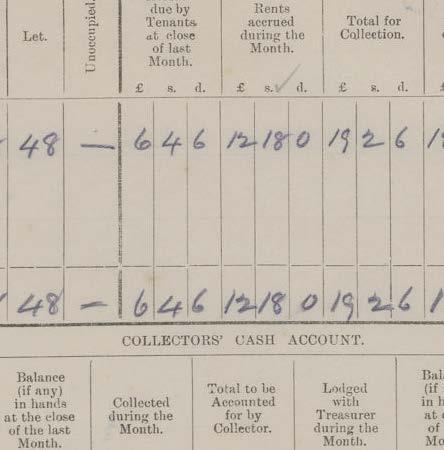 due by Rents
Tenants accrued Total for
Let. Unoccupied. at close during the Collection.
of last Month.
Month.
£ s. d. £ s. d. £ s. d.
48 — 6 4 6 12 18 0 19 2 6
48 — 6 4 6 12 18 0 19 2 6
COLLECTORS' CASH ACCOUNT.
Balance
(if any) Collected Total to be Lodged
in hands during the Accounted with
at the close Month. for by Treasurer
of the last Collector. during the
Month. Month.